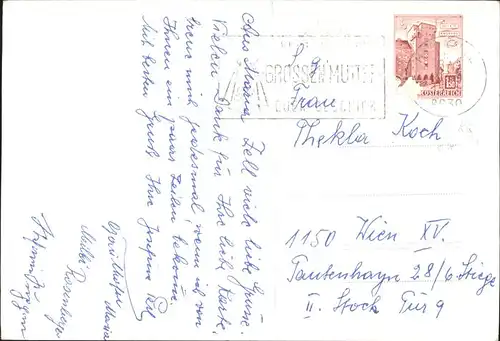 Aus Maria Zell viele liebe Grüsse.
Vielen Dank für Ihre liebe Karte,
freue mich jedesmal, wenn ich von
Ihnen ein paar Zeilen bekomme.
Mit besten Gruß Ihre Josefine
Maria
GROSSEN MUTTER
ÖSTERREICH
8630
Frau
Thekla Koch
1150 Wien XV.
Tautenhayn 28/6 Stiege
II. Stock Tür 9